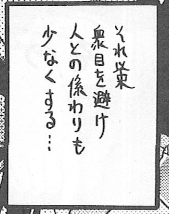 それ以来
衆目を避け
人との係わりも
少なくする…